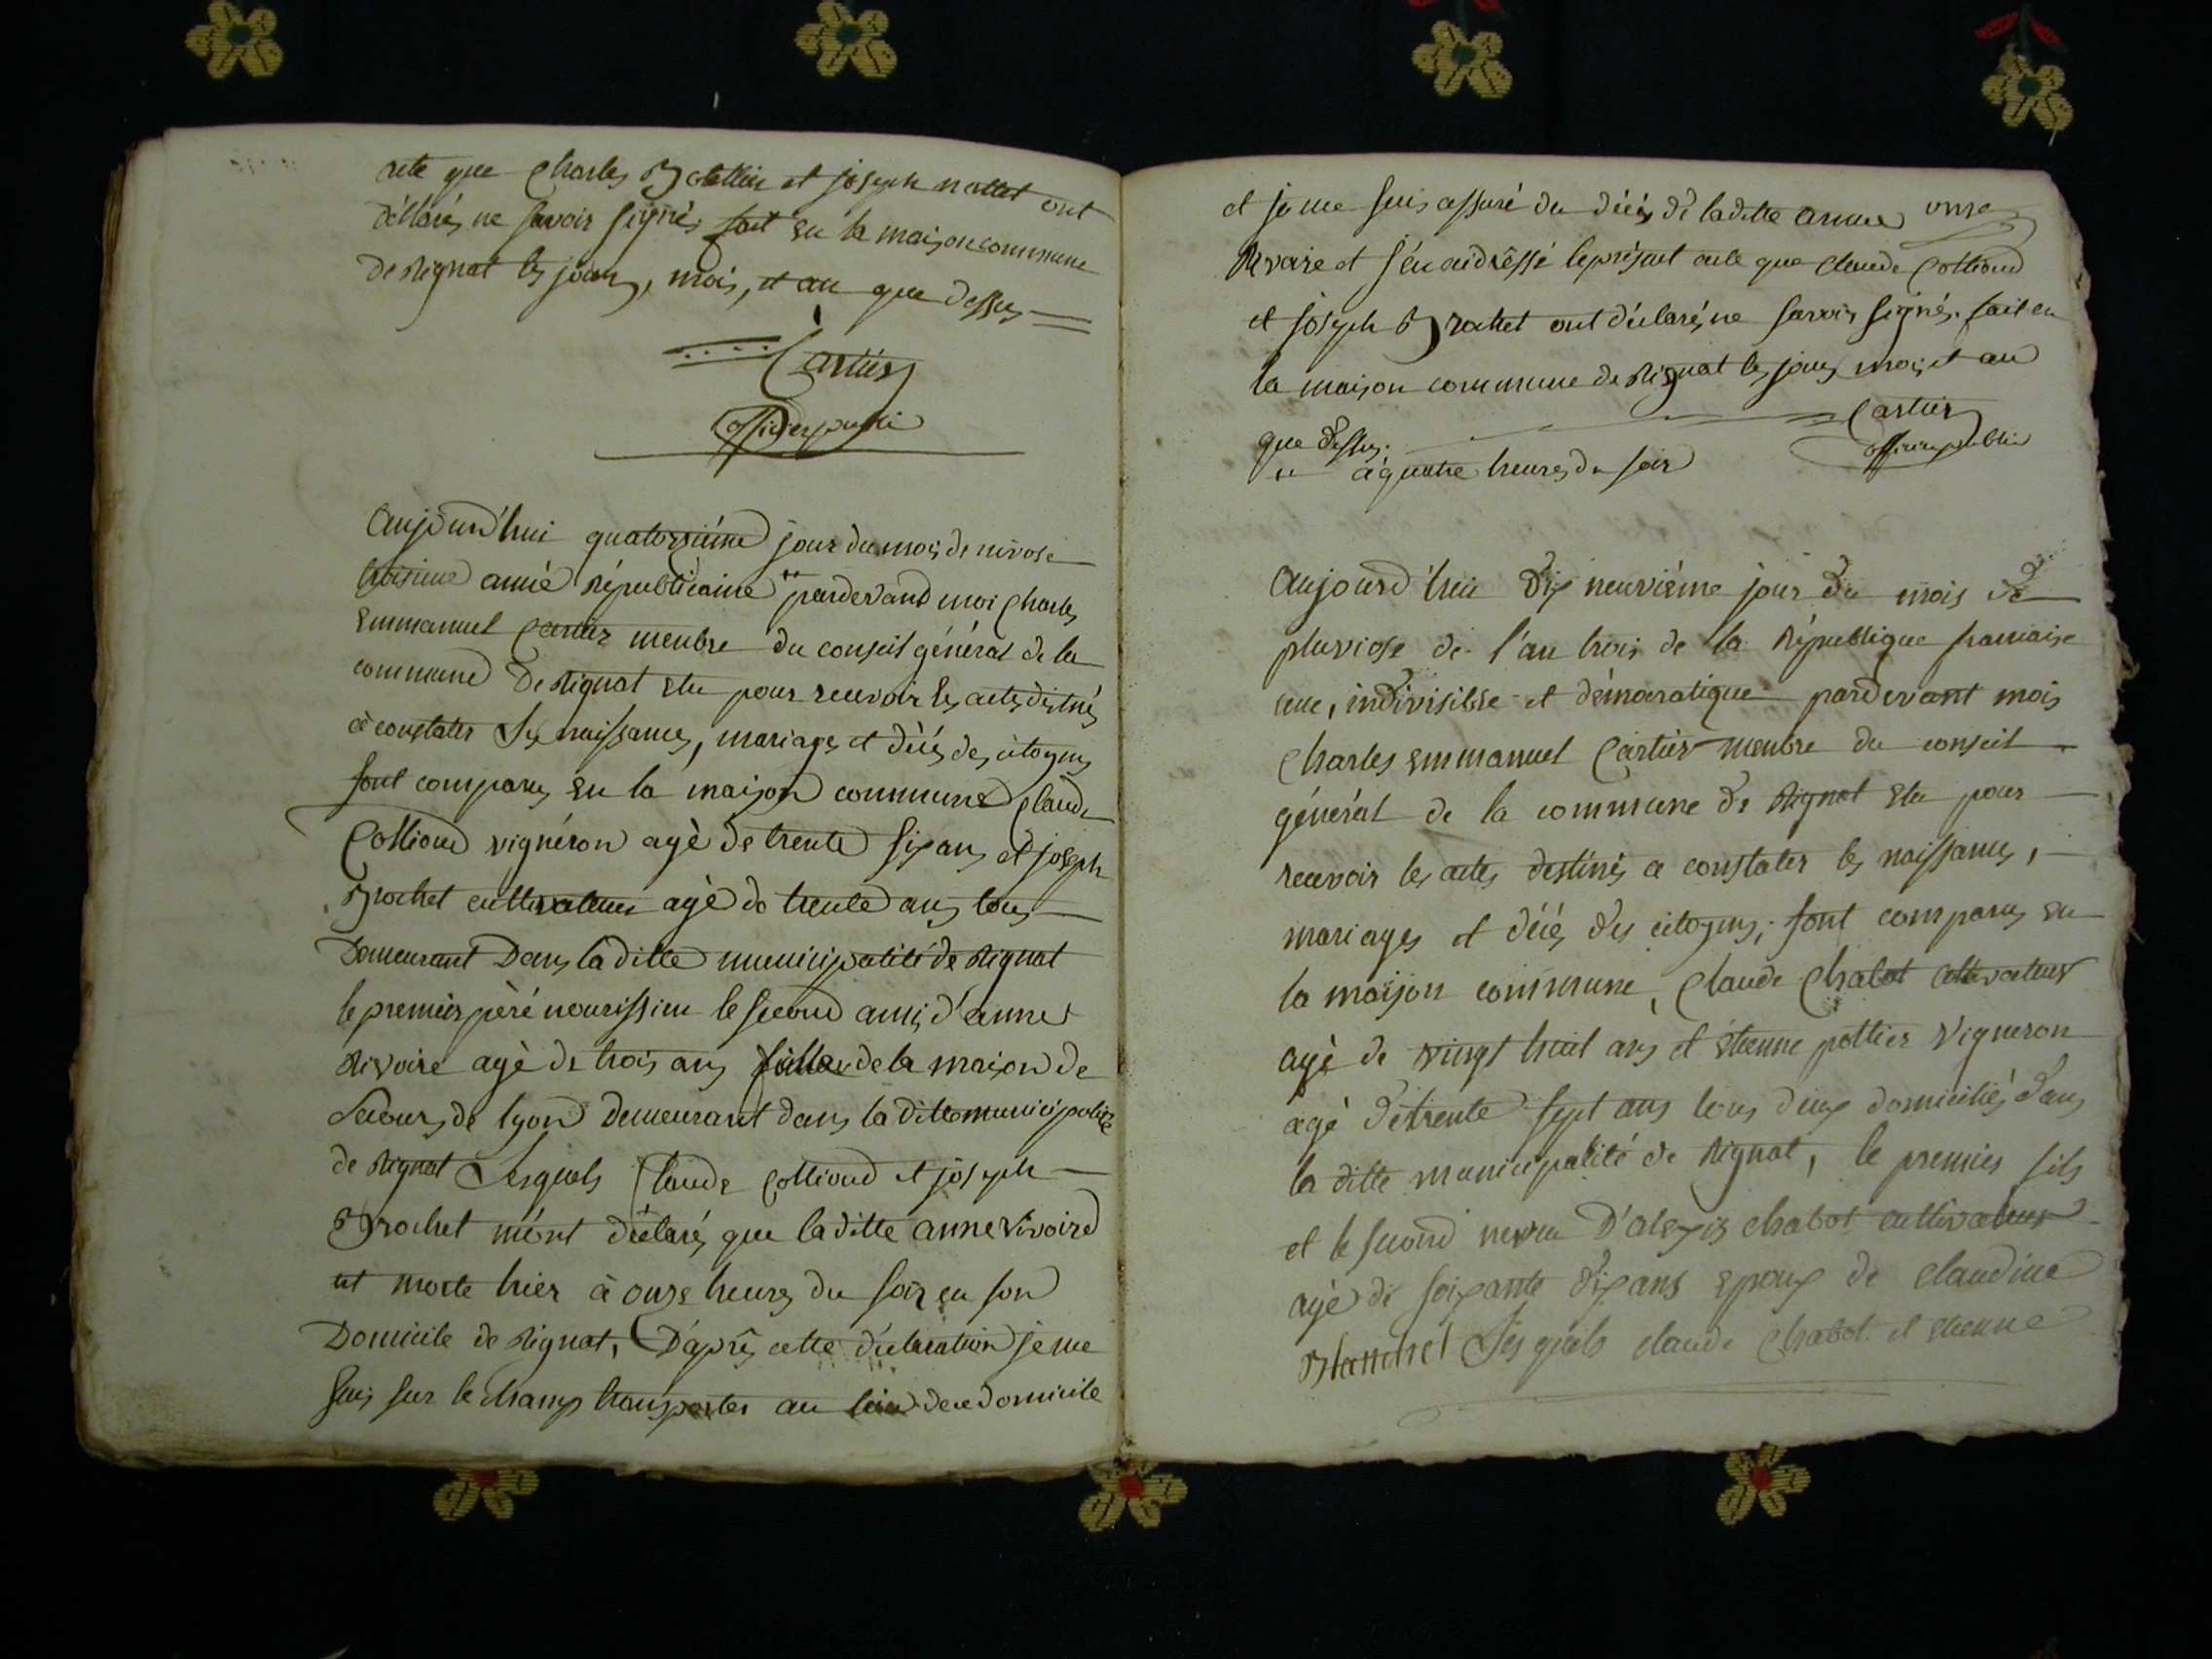 que Charles et joseph ont
déclarés ne savoir signés fait en la maison commune
de Rignat les jour, mois, et an que dessus
Cartier
officier public
aujourd'hui quatorzième jour du mois de nivose
troisieme année Républicaine " pardevant moi Charles
Emmanuel Cartier menbre du conseil général de la
commune de Rignat elu pour recevoir les actes destinés
à constater les naissances, mariages et décès des citoyens
sont comparus en la maison commune Claude
Collioud vignéron agé de trente six ans et joseph
Brochet cultivateur agé de trente ans tous
demeurant dans la ditte municipalité de Rignat
le premier pere nourissieu le second ami d'anne
Rivoire agé de trois ans fille de la maison de
secours de lyon demeurant dans la ditte municipalité
de Rignat Lesquels Claude Collioud et joseph
Brochet m'ont déclaré, que la ditte anne Rivoire
est morte hier à onze heures du soir en son
Domicile de Rignat, D'après cette déclaration je me
suis sur le champ transporter au lieu de ce domicile
et je me suis assuré du décès de laditte anne onze
Rivoire et j'en ai dréssé le présent acte que claude Collioud
et joseph Brochet ont déclarés ne savoir signés. fait en
la maison commune de Rignat les jour, mois et an
que dessus. Cartier
" à quatre heures du soir officier public
aujourd'hui dix neuvième jour du mois de
pluviose de l'an trois de la République francaise
une, indivisible et démocratique pardevant mois
Charles Emmanuel Cartier menbre du conseil
général de la commune de Rignat elu pour
recevoir les actes destinés a constater les naissances,
mariages et décès des citoyens, sont comparus en
la maison commune, Claude Chabot cultivateur
agé de vingt huit ans et étienne pottier Vigneron
agé de trente sept ans tous deux domiciliés dans
la ditte municipalité de Rignat, le premier fils
et le second neveu D'alexis chabot cultivateur
agé de soixante dix ans epoux de claudine
Blanchet Lesquels claude Chabot et etienne